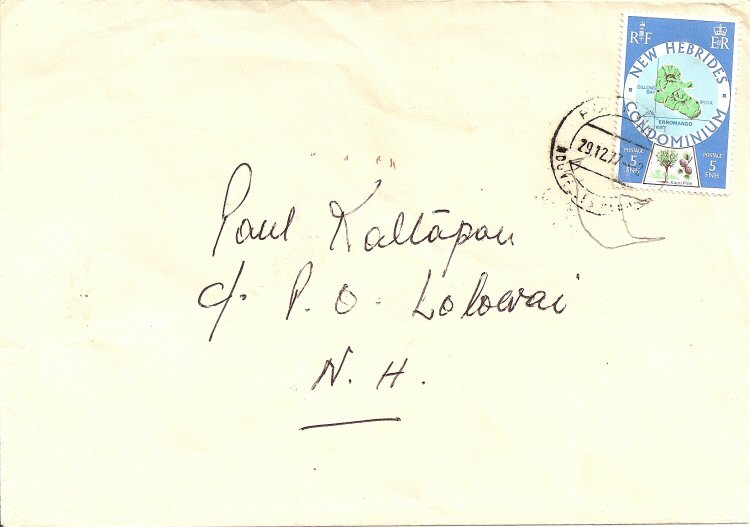 RF E II R
NEW HEBRIDES
DILLONS BAY
IPOTA
ERROMANGO
CONDOMINIUM
POSTAGE 5 FNH
POSTAGE 5 FNH
Kauri Pine
29.12.77
Paul Kaltāpau
c/. P. O. Lolowai
N. H.